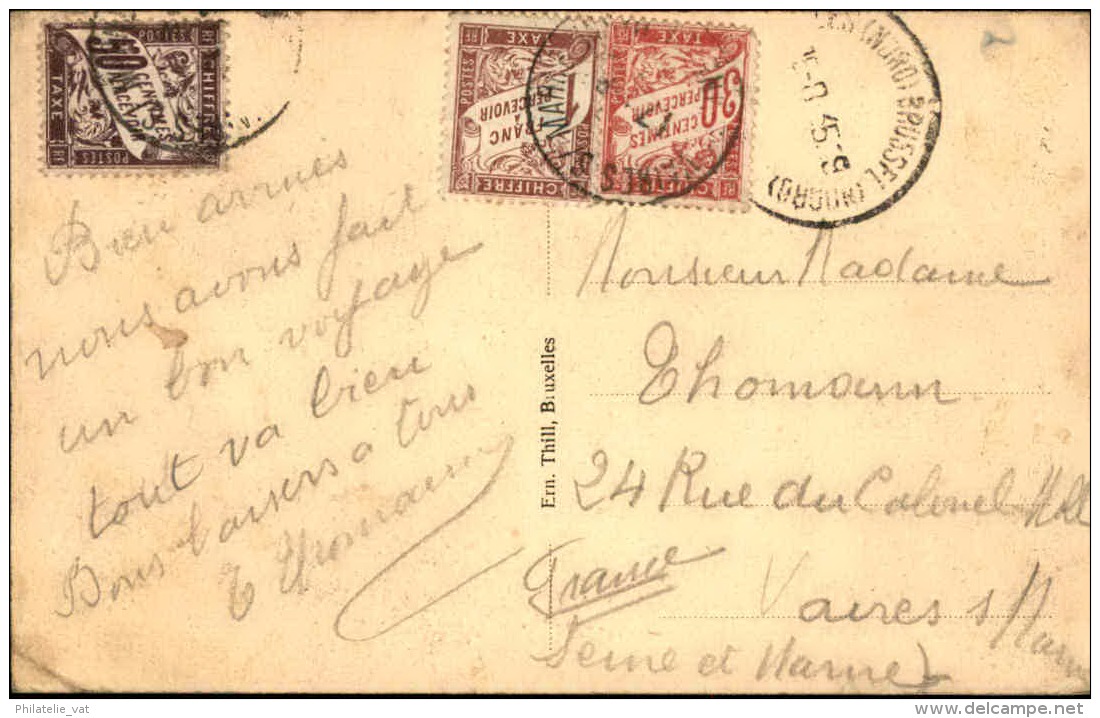 CHIFFRE
TAXE
POSTES
50
CENTIMES
A PERCEVOIR
POSTES
TAXE
RF
1
FRANC
A
PERCEVOIR
CHIFFRE
POSTES
TAXE
RF
30
CENTIMES
A PERCEVOIR
CHIFFRE
RF
(NORD) BRUSSEL (NOORD)
45-9
Bien arrivés
nous avons fait
un bon voyage
tout va bien
Bons baisers a tous
E Thomann
Ern. Thill, Bruxelles
Monsieur Madame
Thomann
24 Rue du Colonel Moll
Vaires s/Marne
France
Seine et Marne
Philatelie_vat
delcampe.net